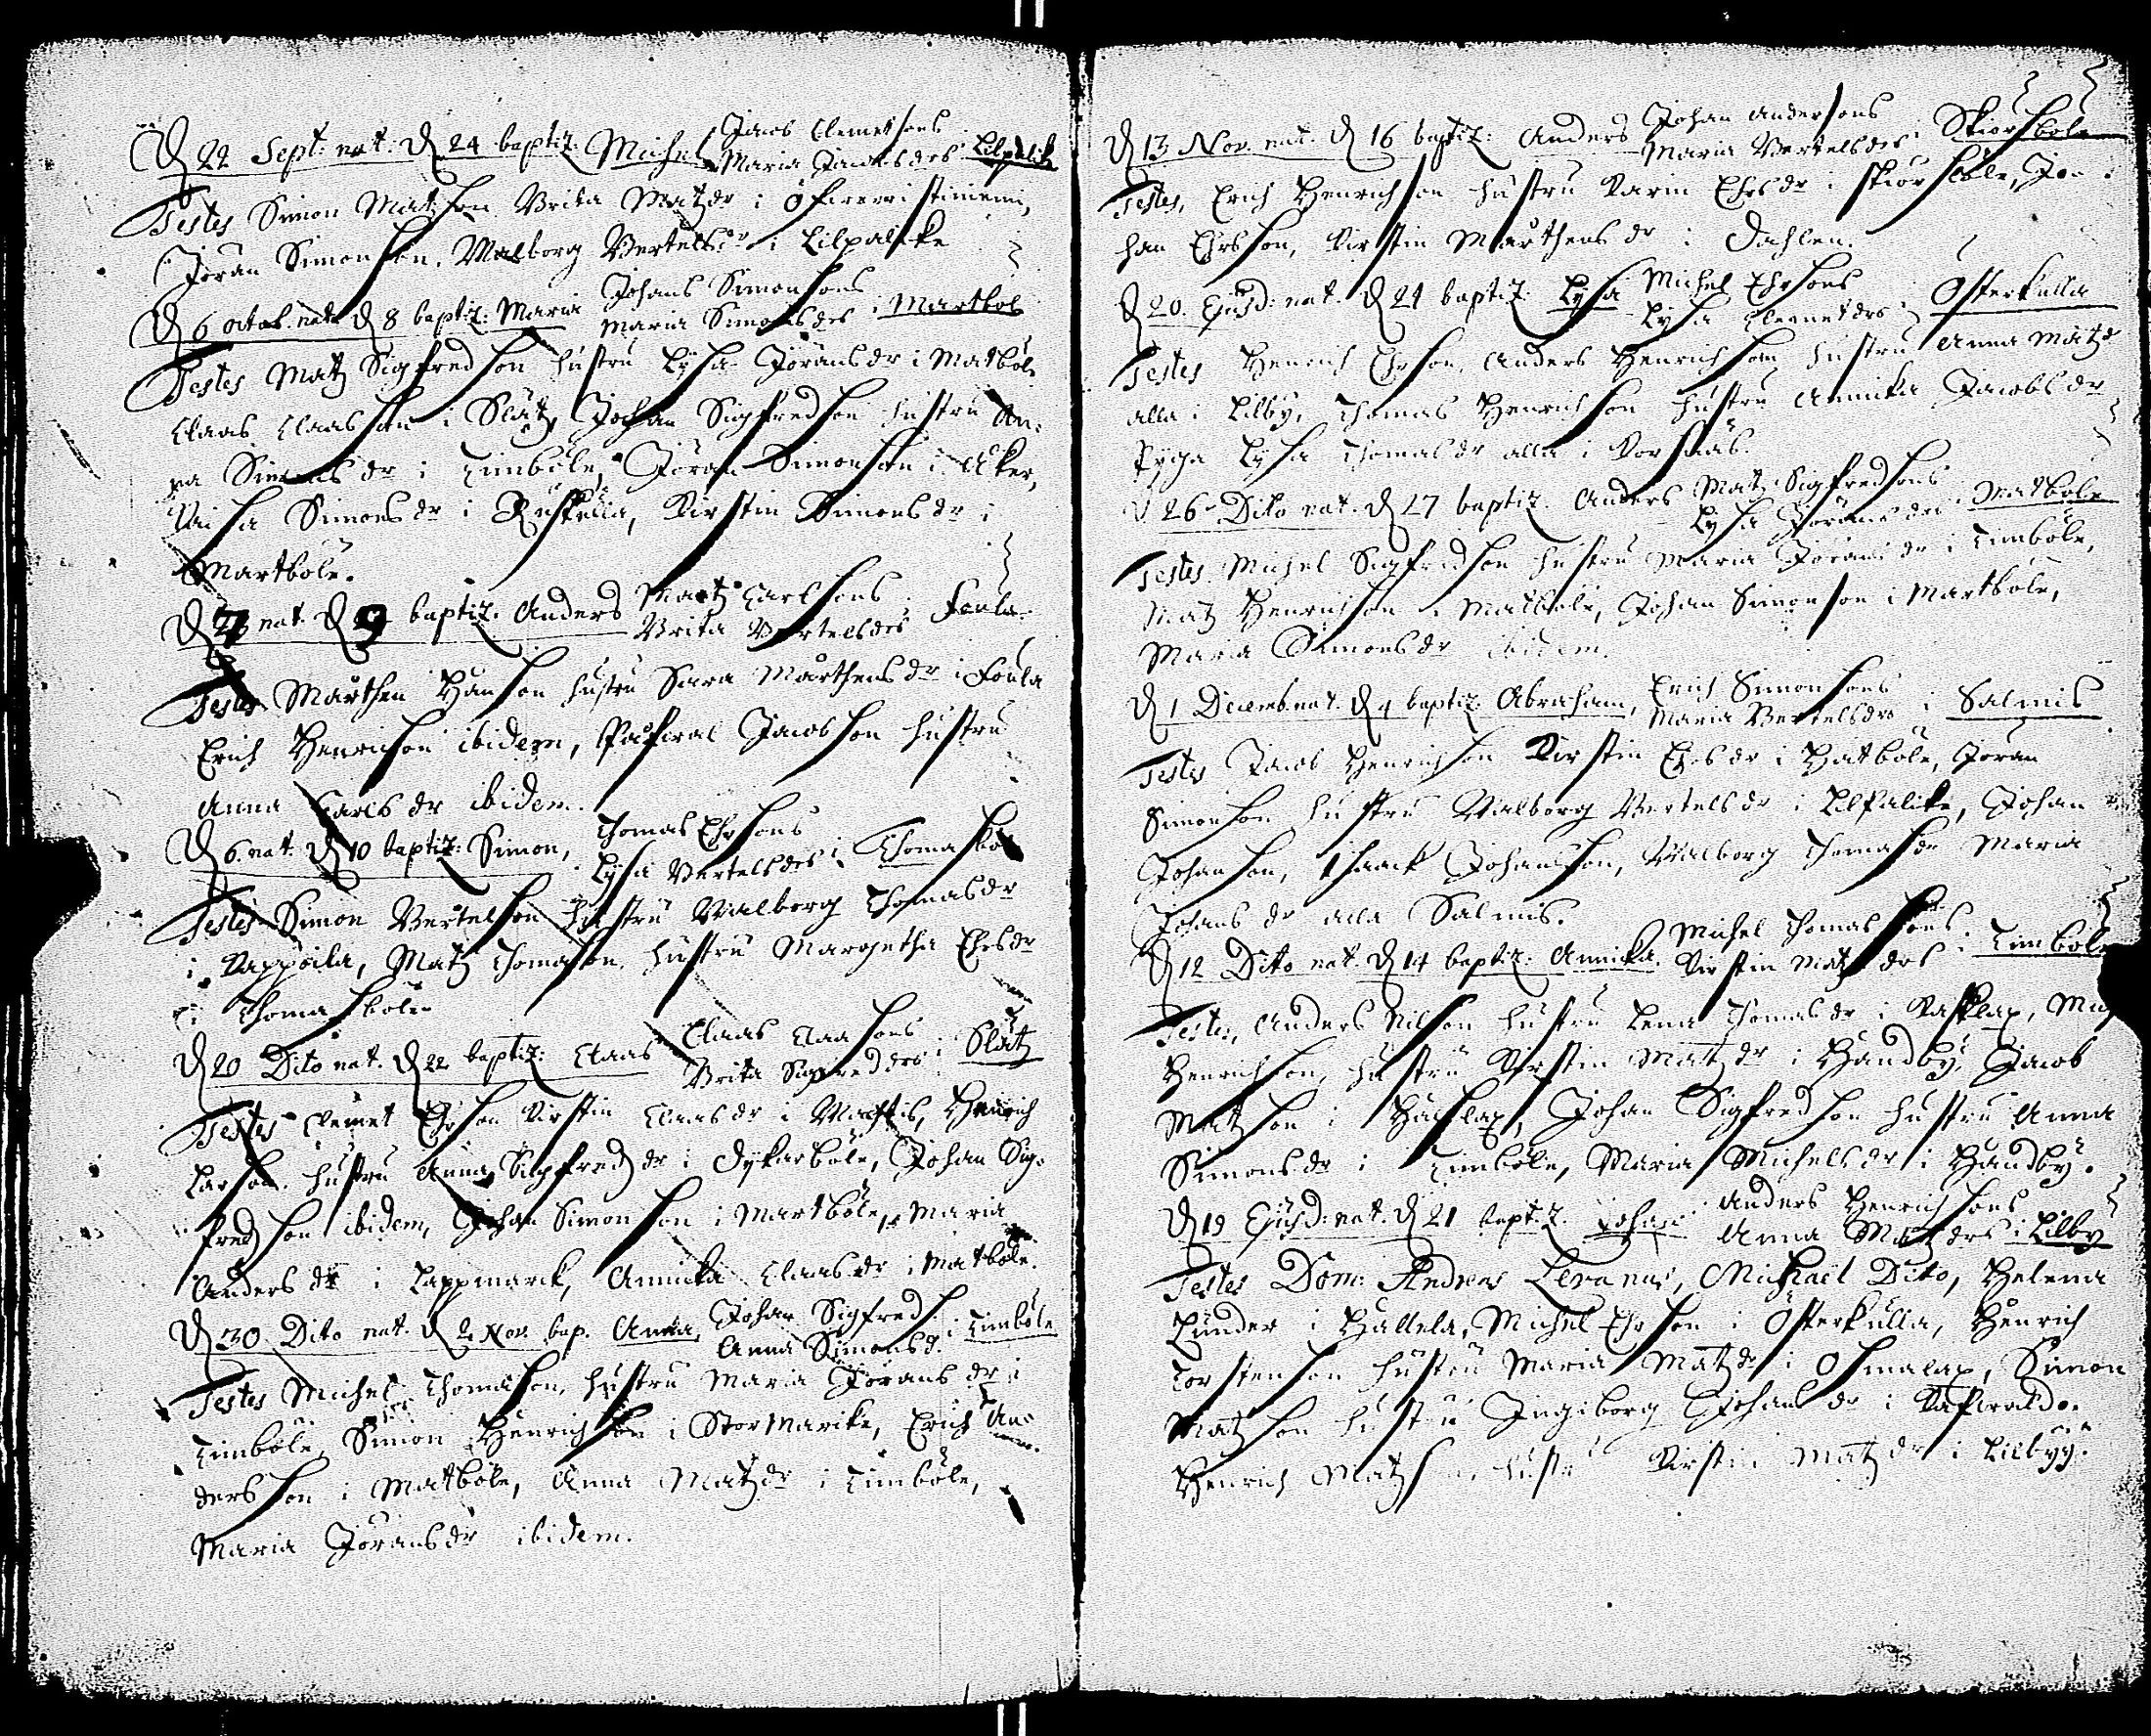 D 22 Sept: nat: D 24 baptiz: Michel Jacob Clemetsons
Maria Jacobsdrs i Lilpalike
Testes Simon Matzson Brita Matzdr i
Jöran Simonson, Walborg Bertelsdr i Lilpalike
D 6 octob. nat. D 8 baptiz: Maria Johans Simonsons
Maria Simonsdrs i Martbol
Testes Matz Sigfredson hustru Lysa Jöransdr i Matböle
Claas Claasson i Slätz, Johan Sigfredson hustru An-
na Simonsdr i Timböle, Jöran Simonson i Åker,
Simonsdr i Kirstin Simonsdr i
Martböle.
D 7 nat. D 9 baptiz. Anders Matz Carlsons
Brita Bertelsdrs i Foula
Testes Mårthen Hanson hustru Sara Mårthensdr i Foula
Erich Henrichson ibidem, Jacobson hustru
Anna Carlsdr ibidem.
D 6. nat. D 10 baptiz: Simon, Thomas Ehrsons
Lysa Bertelsdrs i Thomasböl
Testes Simon Bertelson hustru Walborg Thomasdr
i Kappoila, Matz Thomasson hustru Margetha Ehrsdr
i Thomasböle
D 20 Dito nat. D 22 baptiz: Claas Claas Claasons
Brita Sigfreddrs i Slätz
Testes Clemet Ehrson Kirstin Claasdr i Henrich
Larson hustru Anna Sigfredzdr i Dykarböle, Johan Sig-
fredson ibidem, Johan Simonson i Martböle, Maria
Andersdr i Lappmarck, Annicka Claasdr i Matböle.
D 30 Dito nat. D 2 Nov. bap. Anna, Johan Sigfreds
Anna Simonsd. i Timböle
Testes Michel Thomason, hustru Maria Jöransdr i
Timböle, Simon Henrichson i Stor Marike, Erich An-
dersson i Matböle, Anna Matzdr i Timböle,
Maria Jöransdr ibidem.
D 13 Nov. nat. D 16 baptiz: Anders Johan Andersons
Maria Bertelsdrs i Skiorsböle
Testes, Erich Henrichson hustru Karin Ehrsdr i Skiorsböle, Jo-
han Ehrsson, Kirstin Mårthensdr i Dahlen.
D 20. Ejusd: nat. D 24 baptiz. Lysa Michel Ehrsons
Lysa Clemetdrs i Österkulla
Testes Henrich Ehrson, Anders Henrichson hustru Anna Matzdr
alla i Lilby, Thomas Henrichson hustru Annika Jacobsdr
Pyga Lysa Thomasdr alla i Korsnäs.
D 26 Dito nat. D 27 baptiz. Anders Matz Sigfredsons
Lysa Jöransdrs i Matböle
Testes Michel Sigfridson hustru Maria Jöransdr i Timböle,
Matz Henrichson i Matböle, Johan Simonson i Martböle,
Maria Simonsdr ibidem.
D 1 Decemb nat. D 4 baptiz: Abraham, Erich Simonsons
Maria Bertelsdrs i Salmis
Testes Jacob Henrichson Kirstin Ehrsdr i Hatböle, Jöran
Simonson hustru Walborg Bertelsdr i Lilpalike, Johan
Johanson, Isaack Johansson, Walborg Thomasdr Maria
Johansdr alla Salmis.
D 12 Dito nat. D 14 baptiz: Annika. Michel Thomassons
Kirstin Matzdrs i Timböle
Testes, Anders Nilson hustru Lena Thomasdr i
Henrichson, hustru Kirstin Matzdr i Handby, Jacob
Matzson i Johan Sigfredson hustru Anna
Simonsdr i Timböle, Maria Michelsdr i Handby.
D 19 Ejusd: nat. D 21 baptiz. Johan Anders Henrichsons
Anna Matzdrs i Lilby
Testes Dom: Andreas Levanus, Michael Dito, Helena
i Hallela, Michel Ehrson i Österkulla, Henrich
Torstenson hustru Maria Matzdr i Simon
Matzson hustru Ingiborg Johansdr i
Henrich Matzson, hustru Kirstin Matzdr i Lilbyy.